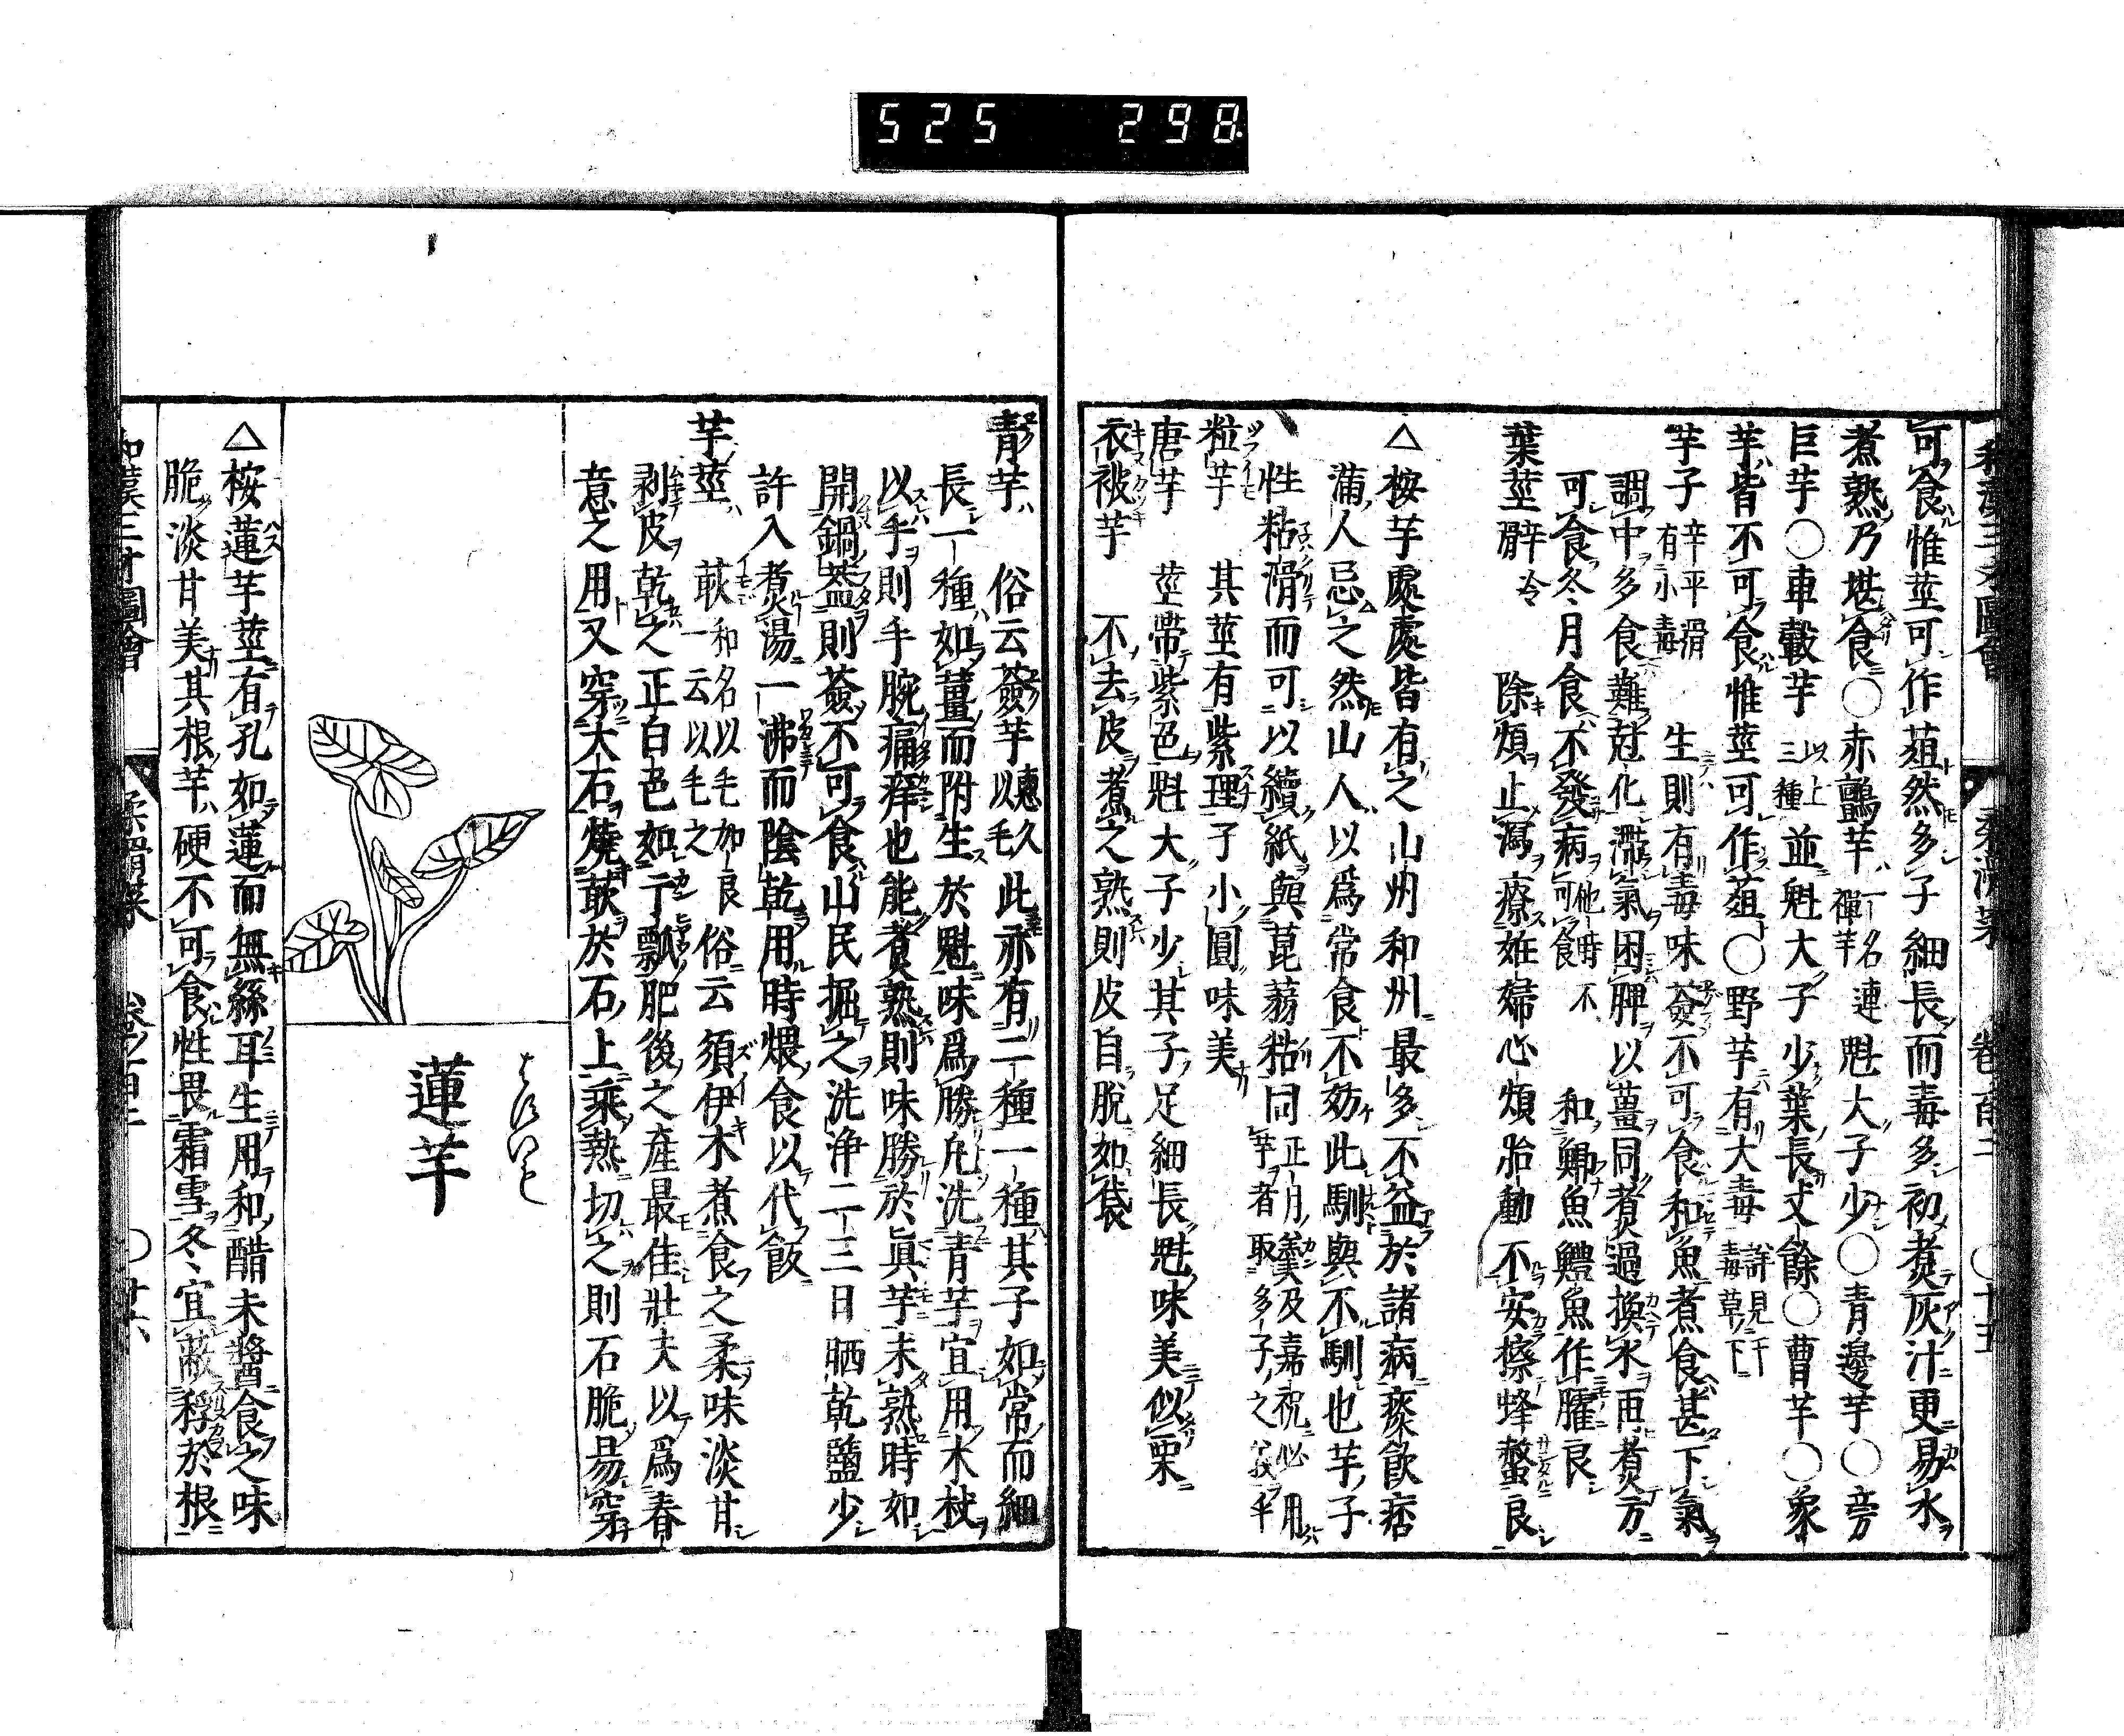 525 298
可食惟莖可作葅然多子細長而毒多初煮灰汁更易水
煮熟乃堪食○赤鸇芋一名禪芋連魁大子少○青邊芋○旁
巨芋○車轂芋以上三種並魁大子少葉長丈餘○曹芋○象
芋皆不可食惟莖可作葅○野芋有大毒詳見于毒草下
芋子辛平滑有小毒 生則有毒味莶不可食和魚煮食甚下氣
調中多食難尅化滯氣困脾以薑同煮過換水再煮方
可食冬月食不發病他時不可食 和鯽魚鱧魚作臛良
葉莖辛冷滑 除煩止瀉療妊婦心煩胎動不安擦蜂螫良
△桉芋處處皆有之山州和州最多不益於諸病瘵飮痞
滿人忌之然山人以爲常食不妨此馴與不馴也芋子
性粘滑而可以續紙與菎蒻粘同正月羹及嘉祝必用芋者取多子之義乎
粒芋 其莖有紫理子小圓味美
唐芋 莖帶紫色魁大子少其子足細長魁味美似栗
衣被芋 不去皮煮之熟則皮自脫如袋
青芋 俗云莶芋以毛 此亦有二種一種其子如常而細
長一種如薑而附生於魁味爲勝凡洗青芋宜用木杖
以手則手腕痛痒也能煮熟則味勝於眞芋未熟時如
開鍋葢則莶不可食山民掘之洗浄二三日晒乾鹽少
許入煮湯一沸而陰乾用時煨食以代飯
芋莖 苃和名以毛加良一云以毛之俗云須伊木煮食之柔味淡甘
剥皮乾之正白色如干瓢肥後之產最佳壯夫以爲春
意之用又穿大石燒苃於石上乘熱切之則石脆易穿
はすいも
蓮芋
△桉蓮芋莖有孔如蓮而無絲耳生用和醋未醬食之味
脆淡甘美其根芋硬不可食性畏霜雪冬宜蔽稃於根